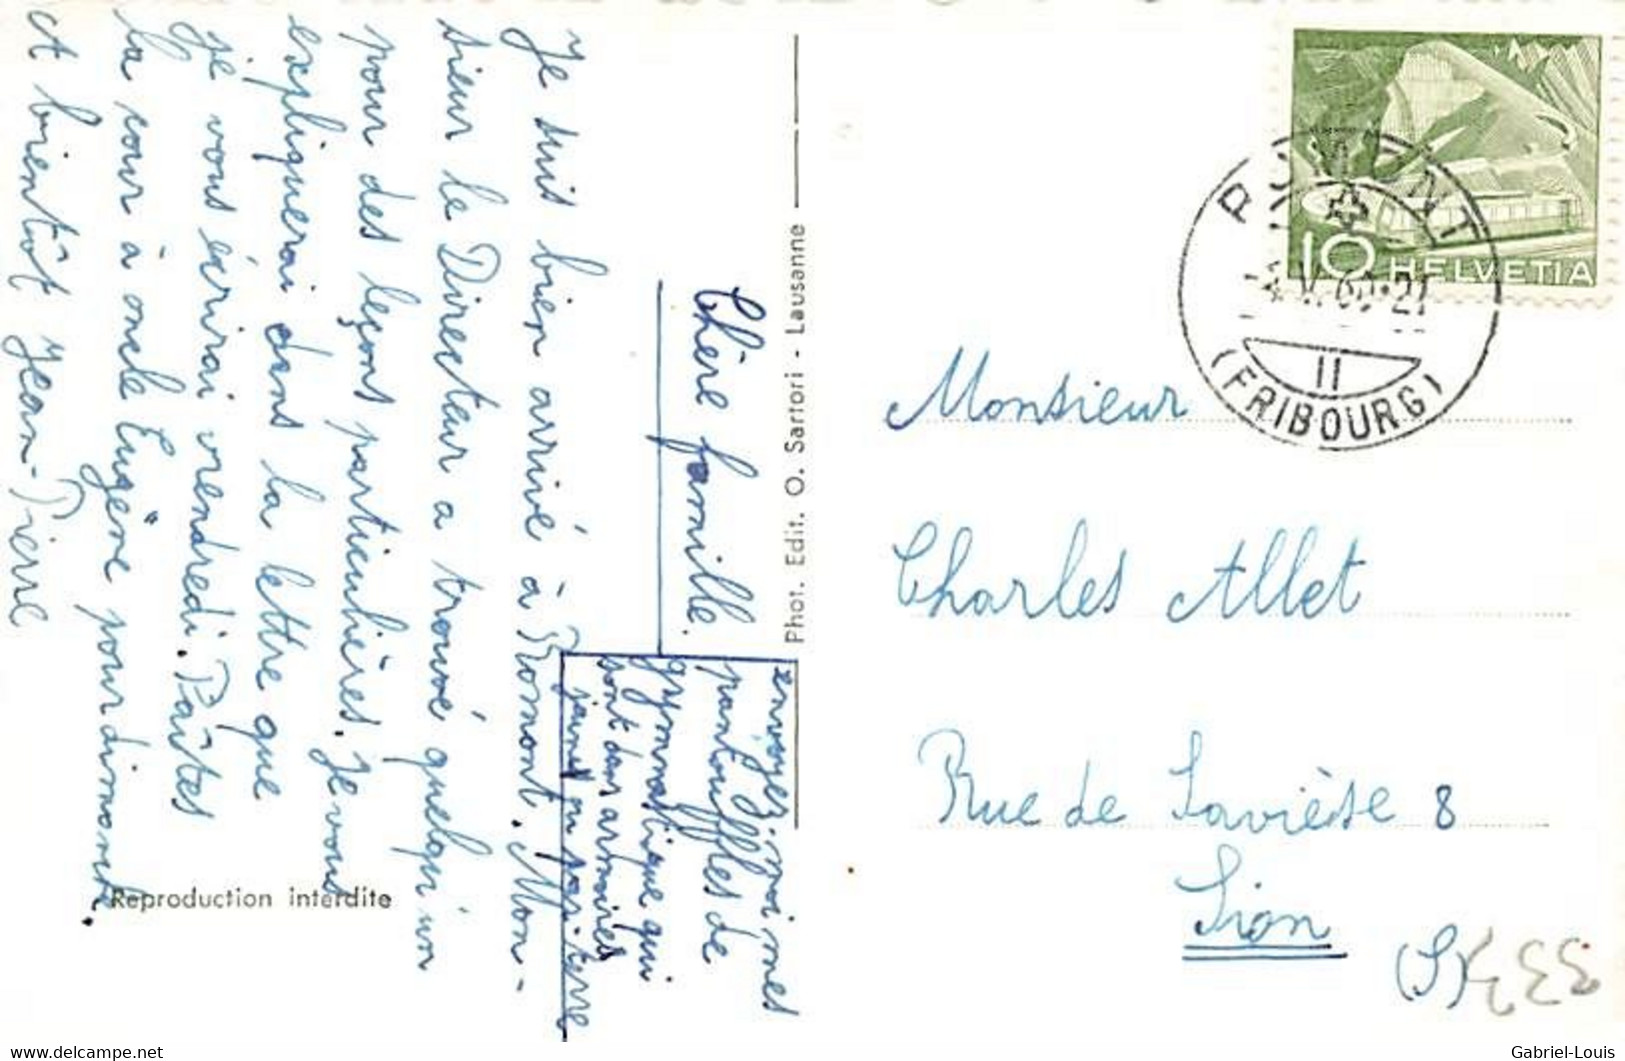 Chère famille.
Je suis bien arrivé à Romont. Mon-
sieur le Directeur a trouvé quelqu'un
pour des leçons particulières. Je vous
expliquerai dans la lettre que
je vous écrirai vendredi. Faîtes
la cour à oncle Eugène pour dimanche.
et bientôt Jean-Pierre
envoyez-moi mes
pantouffles de
gymnastique qui
sont dans armoires
jaune ou par-terre
Phot. Edit. O. Sartori - Lausanne
Reproduction interdite
10 HELVETIA
ROMONT
60-21
II
(FRIBOURG)
Monsieur
Charles Allet
Rue de Savièse 8
Sion
(S)
www.delcampe.net
Gabriel-Louis